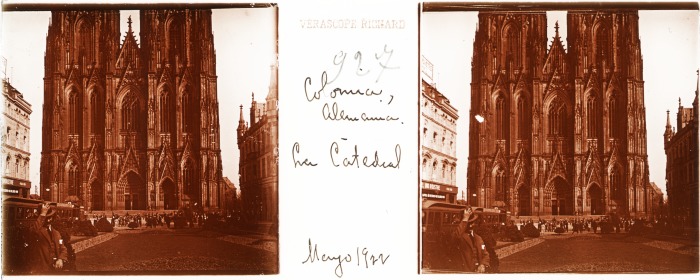 VERASCOPE RICHARD
927
Colonia,
Alemania.
La Catedral
Mayo 1922